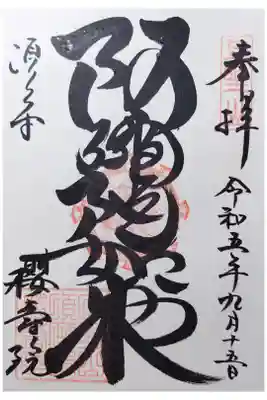 奉拝
令和五年九月十五日
阿弥陀如来
櫻壽院